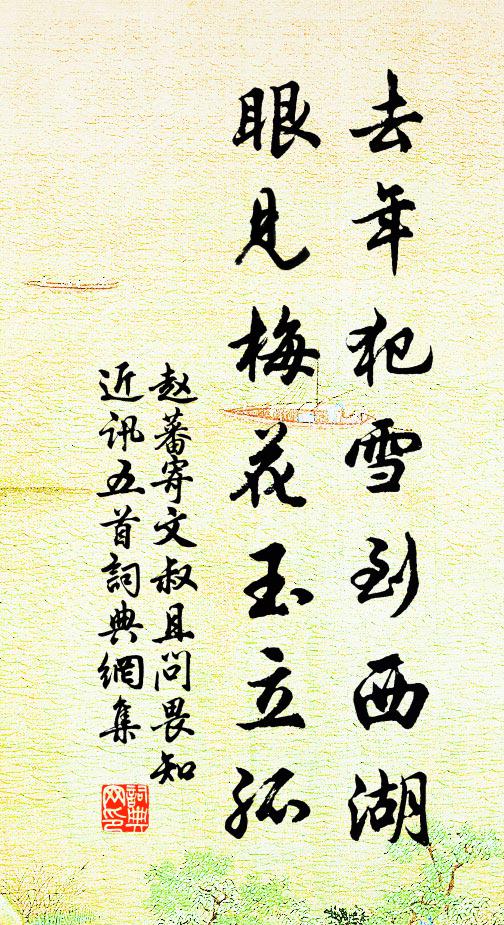 去年犯雪到西湖
眼見梅花玉立孤
赵蕃寄文叔且问畏知
近讯五首詞典網集
詞典
网印